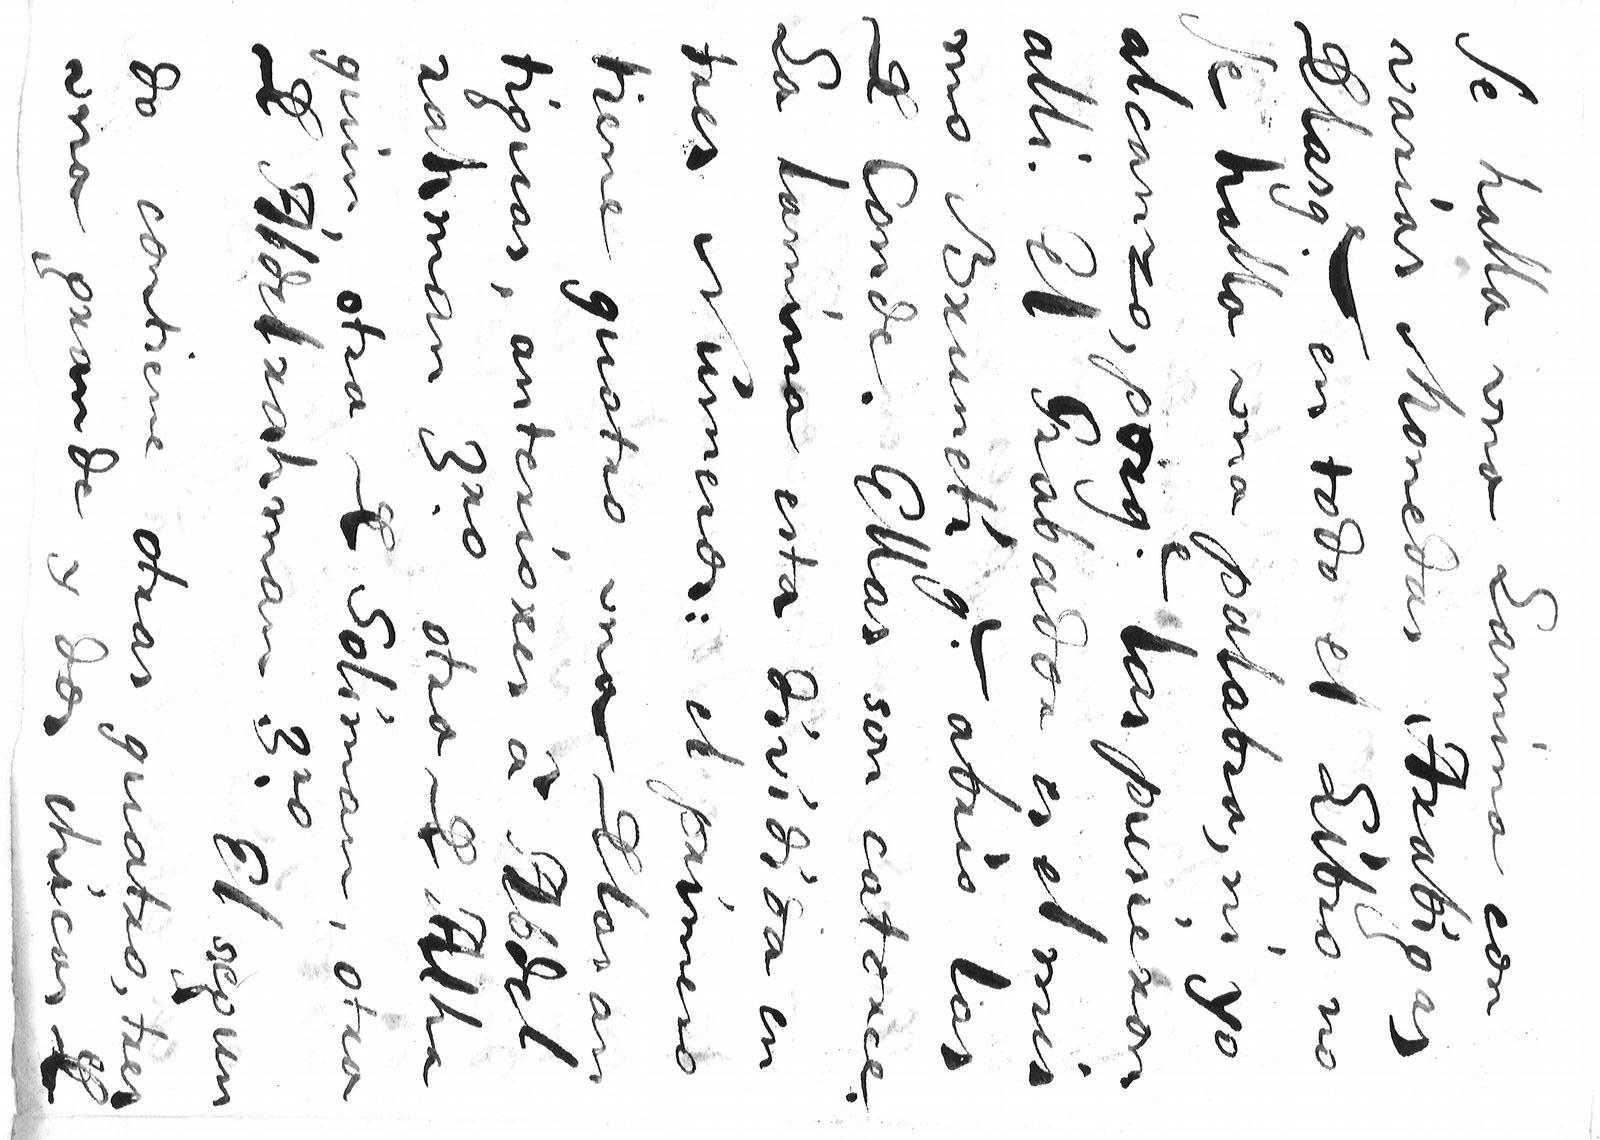 Se halla vna Lamina con
varias Monedas Arabigas
De las q.e en todo el Libro no
se halla vna palabra, ni yo
alcanzo, porq.e las pusieron
alli. El Grabador es el mis
mo Brunetti q.e abrio las
de Conde. Ellas son catorce.
La lamina esta dividida en
tres Números: el primero
tiene quatro vna de las an
tiguas, anteriores á Abdel
rahman 3.ro otra de Alha
quin, otra de Soliman, otra
de Abdelrahman 3.ro El segun
do contiene otras quatro, tres